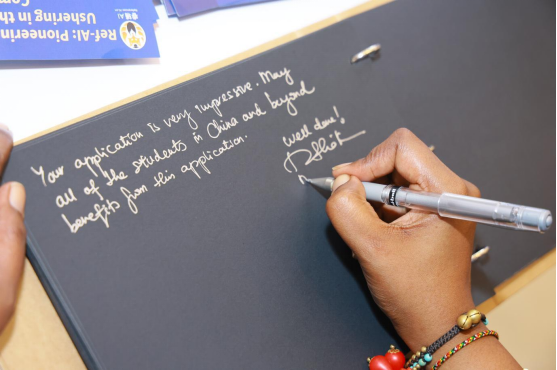 Ref-AI: Pioneerin
Ushering in th
Com
Your application is very impressive. May
all of the students in China and beyond
benefits from this application.
Well done!